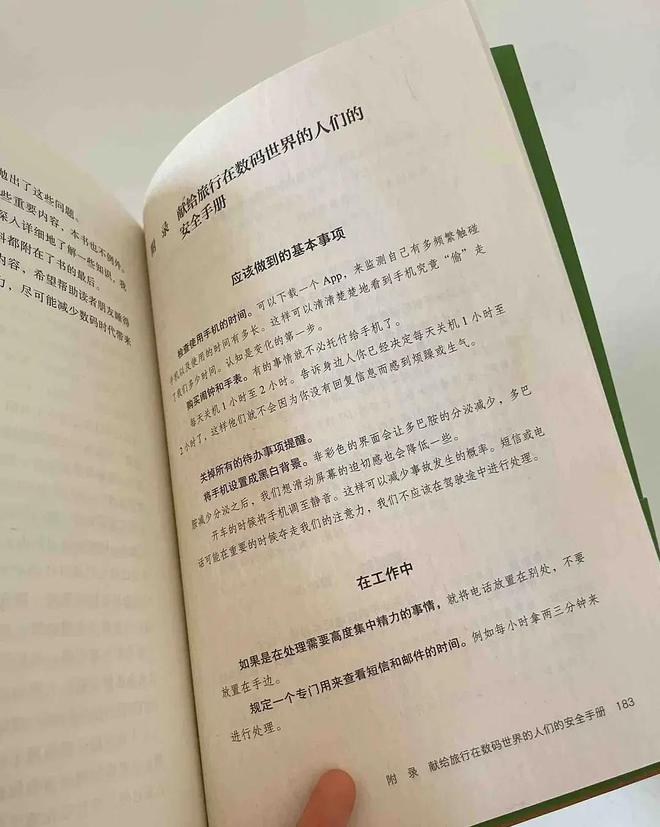 抛出了这些问题。
些重要内容，本书也不例外。
深入详细地了解一些知识，我
料都附在了书的最后。
内容，希望帮助读者朋友睡得
，尽可能减少数码时代带来
附 录 献给旅行在数码世界的人们的
安全手册
应该做到的基本事项
检查使用手机的时间。可以下载一个 App，来监测自己有多频繁触碰
手机以及使用的时间有多长。这样可以清清楚楚地看到手机究竟“偷”走
了我们多少时间。认知是变化的第一步。
购买闹钟和手表。有的事情就不必托付给手机了。
每天关机 1 小时至 2 小时。告诉身边人你已经决定每天关机 1 小时至
2 小时了，这样他们就不会因为你没有回复信息而感到烦躁或生气。
关掉所有的待办事项提醒。
将手机设置成黑白背景。非彩色的界面会让多巴胺的分泌减少，多巴
胺减少分泌之后，我们想滑动屏幕的迫切感也会降低一些。
开车的时候将手机调至静音。这样可以减少事故发生的概率。短信或电
话可能在重要的时候夺走我们的注意力，我们不应该在驾驶途中进行处理。
在工作中
如果是在处理需要高度集中精力的事情，就将电话放置在别处，不要
放置在手边。
规定一个专门用来查看短信和邮件的时间。例如每小时拿两三分钟来
进行处理。
附 录 献给旅行在数码世界的人们的安全手册 183